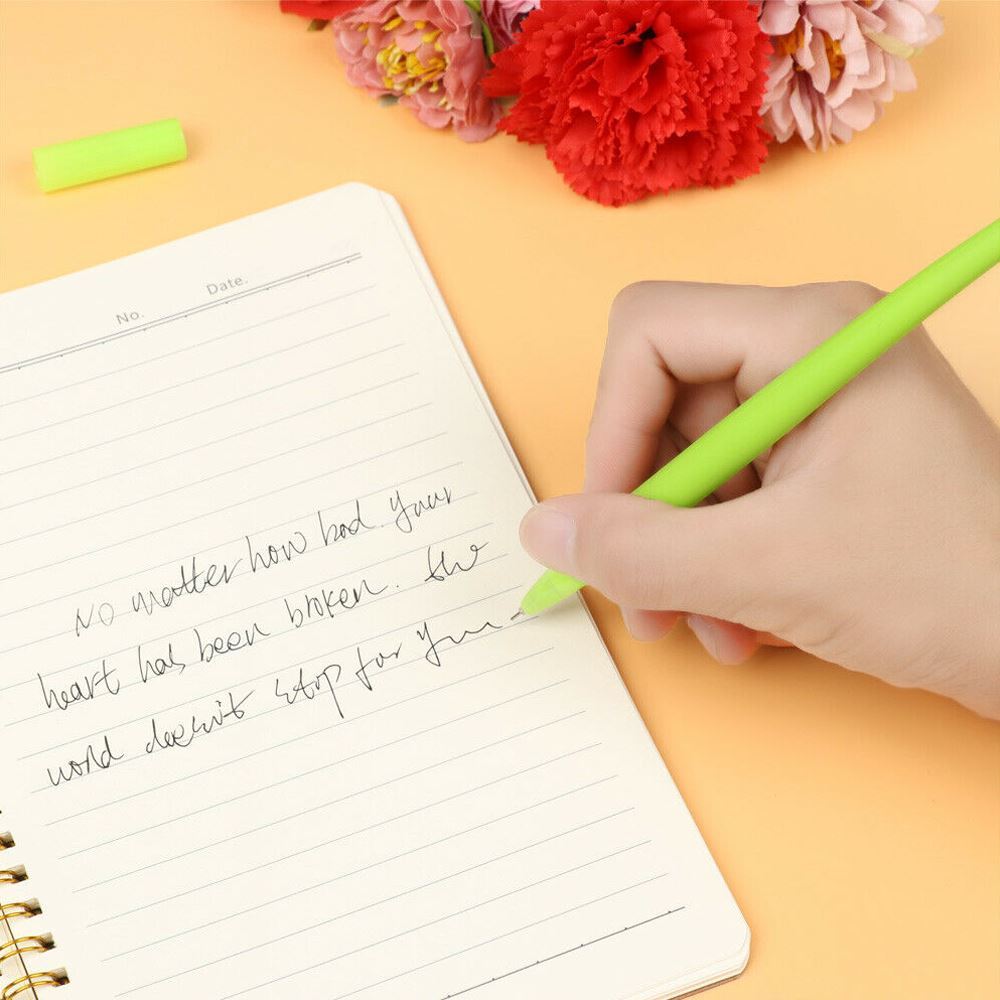 No. Date.
No matter how bad. Your
heart has been broken. the
world doesn't stop for your